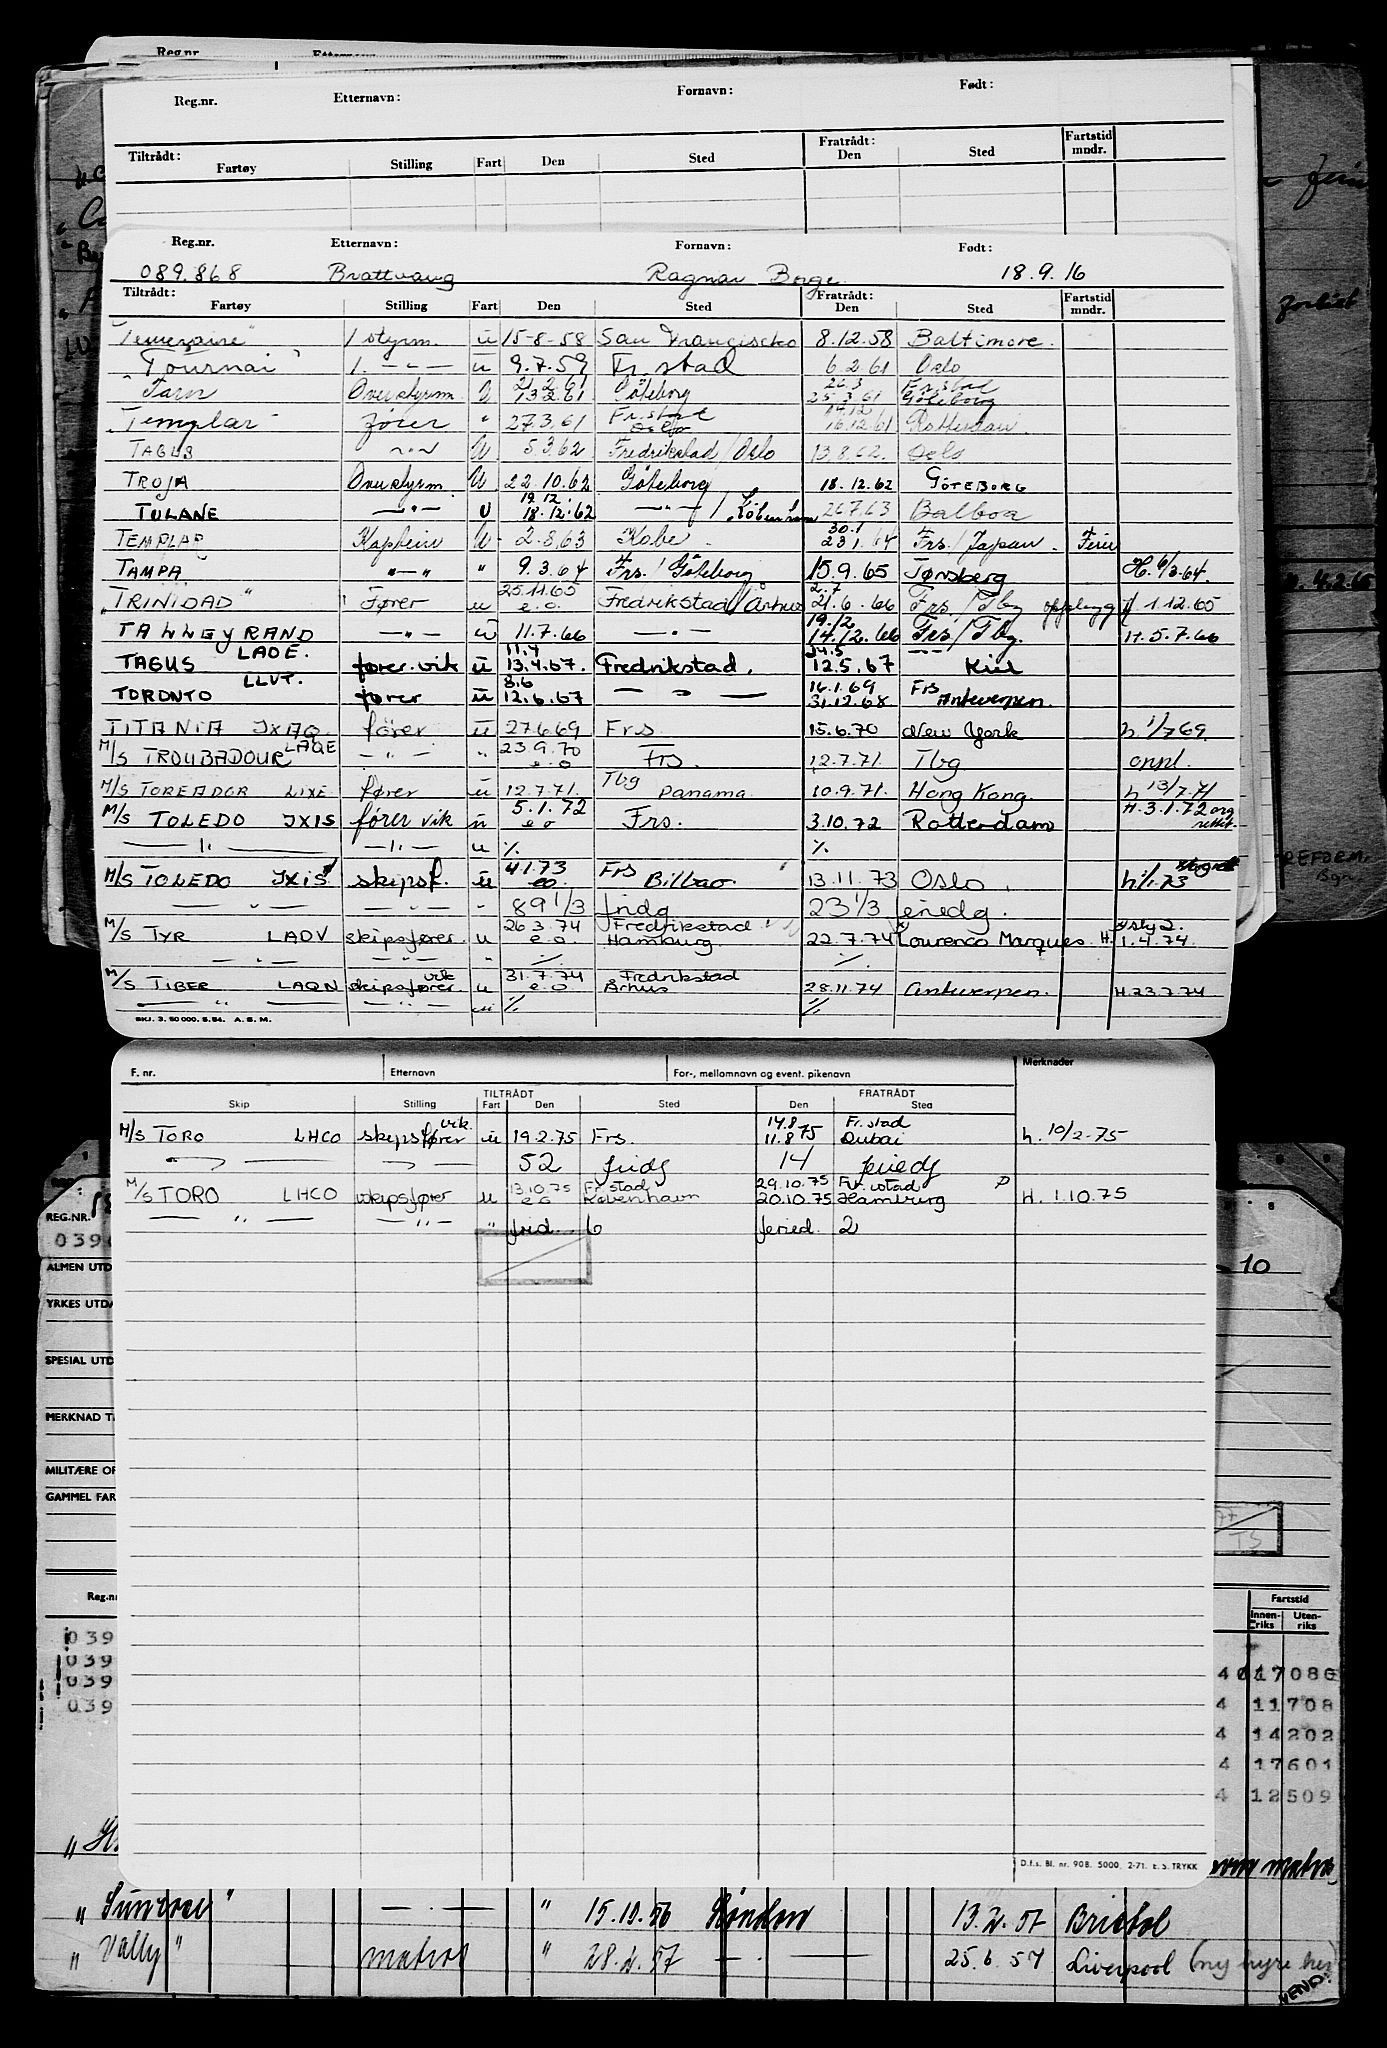 Reg.nr. Etternavn: Fornavn: Født:
Tiltrådt: Fratrådt: Fartstid
Fartøy Stilling Fart Den Sted Den Sted mndr.
Reg.nr. Etternavn: Fornavn: Født:
089.868 Brattvang Ragnar Borge 18.9.16
Tiltrådt: Fratrådt: Fartstid
Fartøy Stilling Fart Den Sted Den Sted mndr.
1 styrm. u 15-8-58 San Francischo 8.12.58 Baltimore.
"Tournai" 1. -"- u 9.7.59 Fr.stad 6.2.61 Oslo
Overstyrm. U Göteborg 26.3 Fr.stad
25.3.61 Göteborg
"Templar" fører " 27.3.61 Fr.stad Oslo 14.12 16.12.61 Rotterdam.
TAGUS -"- U 5.3.62 Fredrikstad / Oslo 13.8.62. Oslo
TROJA Overstyrm. U 22.10.62 Göteborg 18.12.62 GÖTEBORG
TULANE -"- U 19.12. 18.12.62 -"- / København 26.7.63 Balboa
TEMPLAR Kaptein U 2.8.63 Kobe. 30.1 23.1.64 Frs./Japan. Ferie
TAMPA " -"- " 9.3.64 Frs./Göteborg 15.9.65 Tønsberg H. 6/3-64.
"TRINIDAD" Fører u 25.11.65 e.o. Fredrikstad/Århus 2.7 21.6.66 Frs/Tbg opplegg H 1.12.65
TALLEYRAND -"- u 11.7.66 -"- 19.12 14.12.66 Frs/Tbg. H.5.7.66
TAGUS LADE. fører.vik u 11.4 13.4.67. Fredrikstad. 24.5 12.5.67 -"- Kiel
TORONTO LLVT. fører u 8.6 12.6.67 -"- 16.1.69 31.12.68 Frs Antwerpen.
TITANIA JXAQ. fører u 27.6.69 Frs. 15.6.70 New York h. 1/7 69.
M/S TROUBADOUR LAQE -"- " 23.9.70 e.o Frs. 12.7.71. Tbg oppl.
M/S TOREADOR LIXE fører u 12.7.71. Tbg Panama. 10.9.71. Hong Kong. h 13/7.71
M/S TOLEDO JXIS fører vik u 5.1.72 e o Frs. 3.10.72 Rotterdam H.3.1.72 org
-"- -"- u % %
M/S TOLEDO JXIS skipsf. u 4.1.73 eo. Frs Bilbao. 13.11.73 Oslo. h.1/1.73
-"- -"- " 89 1/3 fridg 23 1/3 feriedg.
M/S TYR LADV skipsfører. u 26.3.74 e.o. Fredrikstad Hamburg. 22.7.74 Lourenco Marques. H. 1.4.74.
-"- -"- " % %
M/S TIBER LAQN skipsfører vik u 31.7.74 e.o Fredrikstad Århus 28.11.74 Antwerpen. H.23.7.74
-"- -"- u % %
SKJ. 3. 50 000. 5.54. A. S. M.
F. nr. Etternavn For-, mellomnavn og event. pikenavn Merknader
TILTRÅDT FRATRÅDT
Skip Stilling Fart Den Sted Den Sted
M/S TORO LHCO skipsfører vik. u 19.2.75 Frs. 14.8 11.8.75 Fr.stad Dubai h. 10/2-75
-"- -"- 52 fridg 14 feriedg
M/S TORO LHCO skipsfører u 13.10.75 e o Fr.stad København 29.10.75 20.10.75 Fr.stad Hamburg P H. 1.10.75
-"- -"- " frid. 6 feried. 2
D.f.s. Bl. nr. 908. 5000. 2-71. E. S. TRYKK
REFORM.
Bgn.
REG.NR.
ALMEN UTD
YRKES UTDA
SPESIAL UTD
MERKNAD T
MILITÆRE OP
GAMMEL FAR
10
TS
Reg.nr Fartstid
Innenriks Utenriks
039
039
039
039
4 11708
4 14202
4 17601
4 12509
-"- " 15.10.56 London 13.2.57 Bristol
"Vally" matros " 28.2.57 -"- 25.6.57 Liverpool (ny hyre her)
VEND.